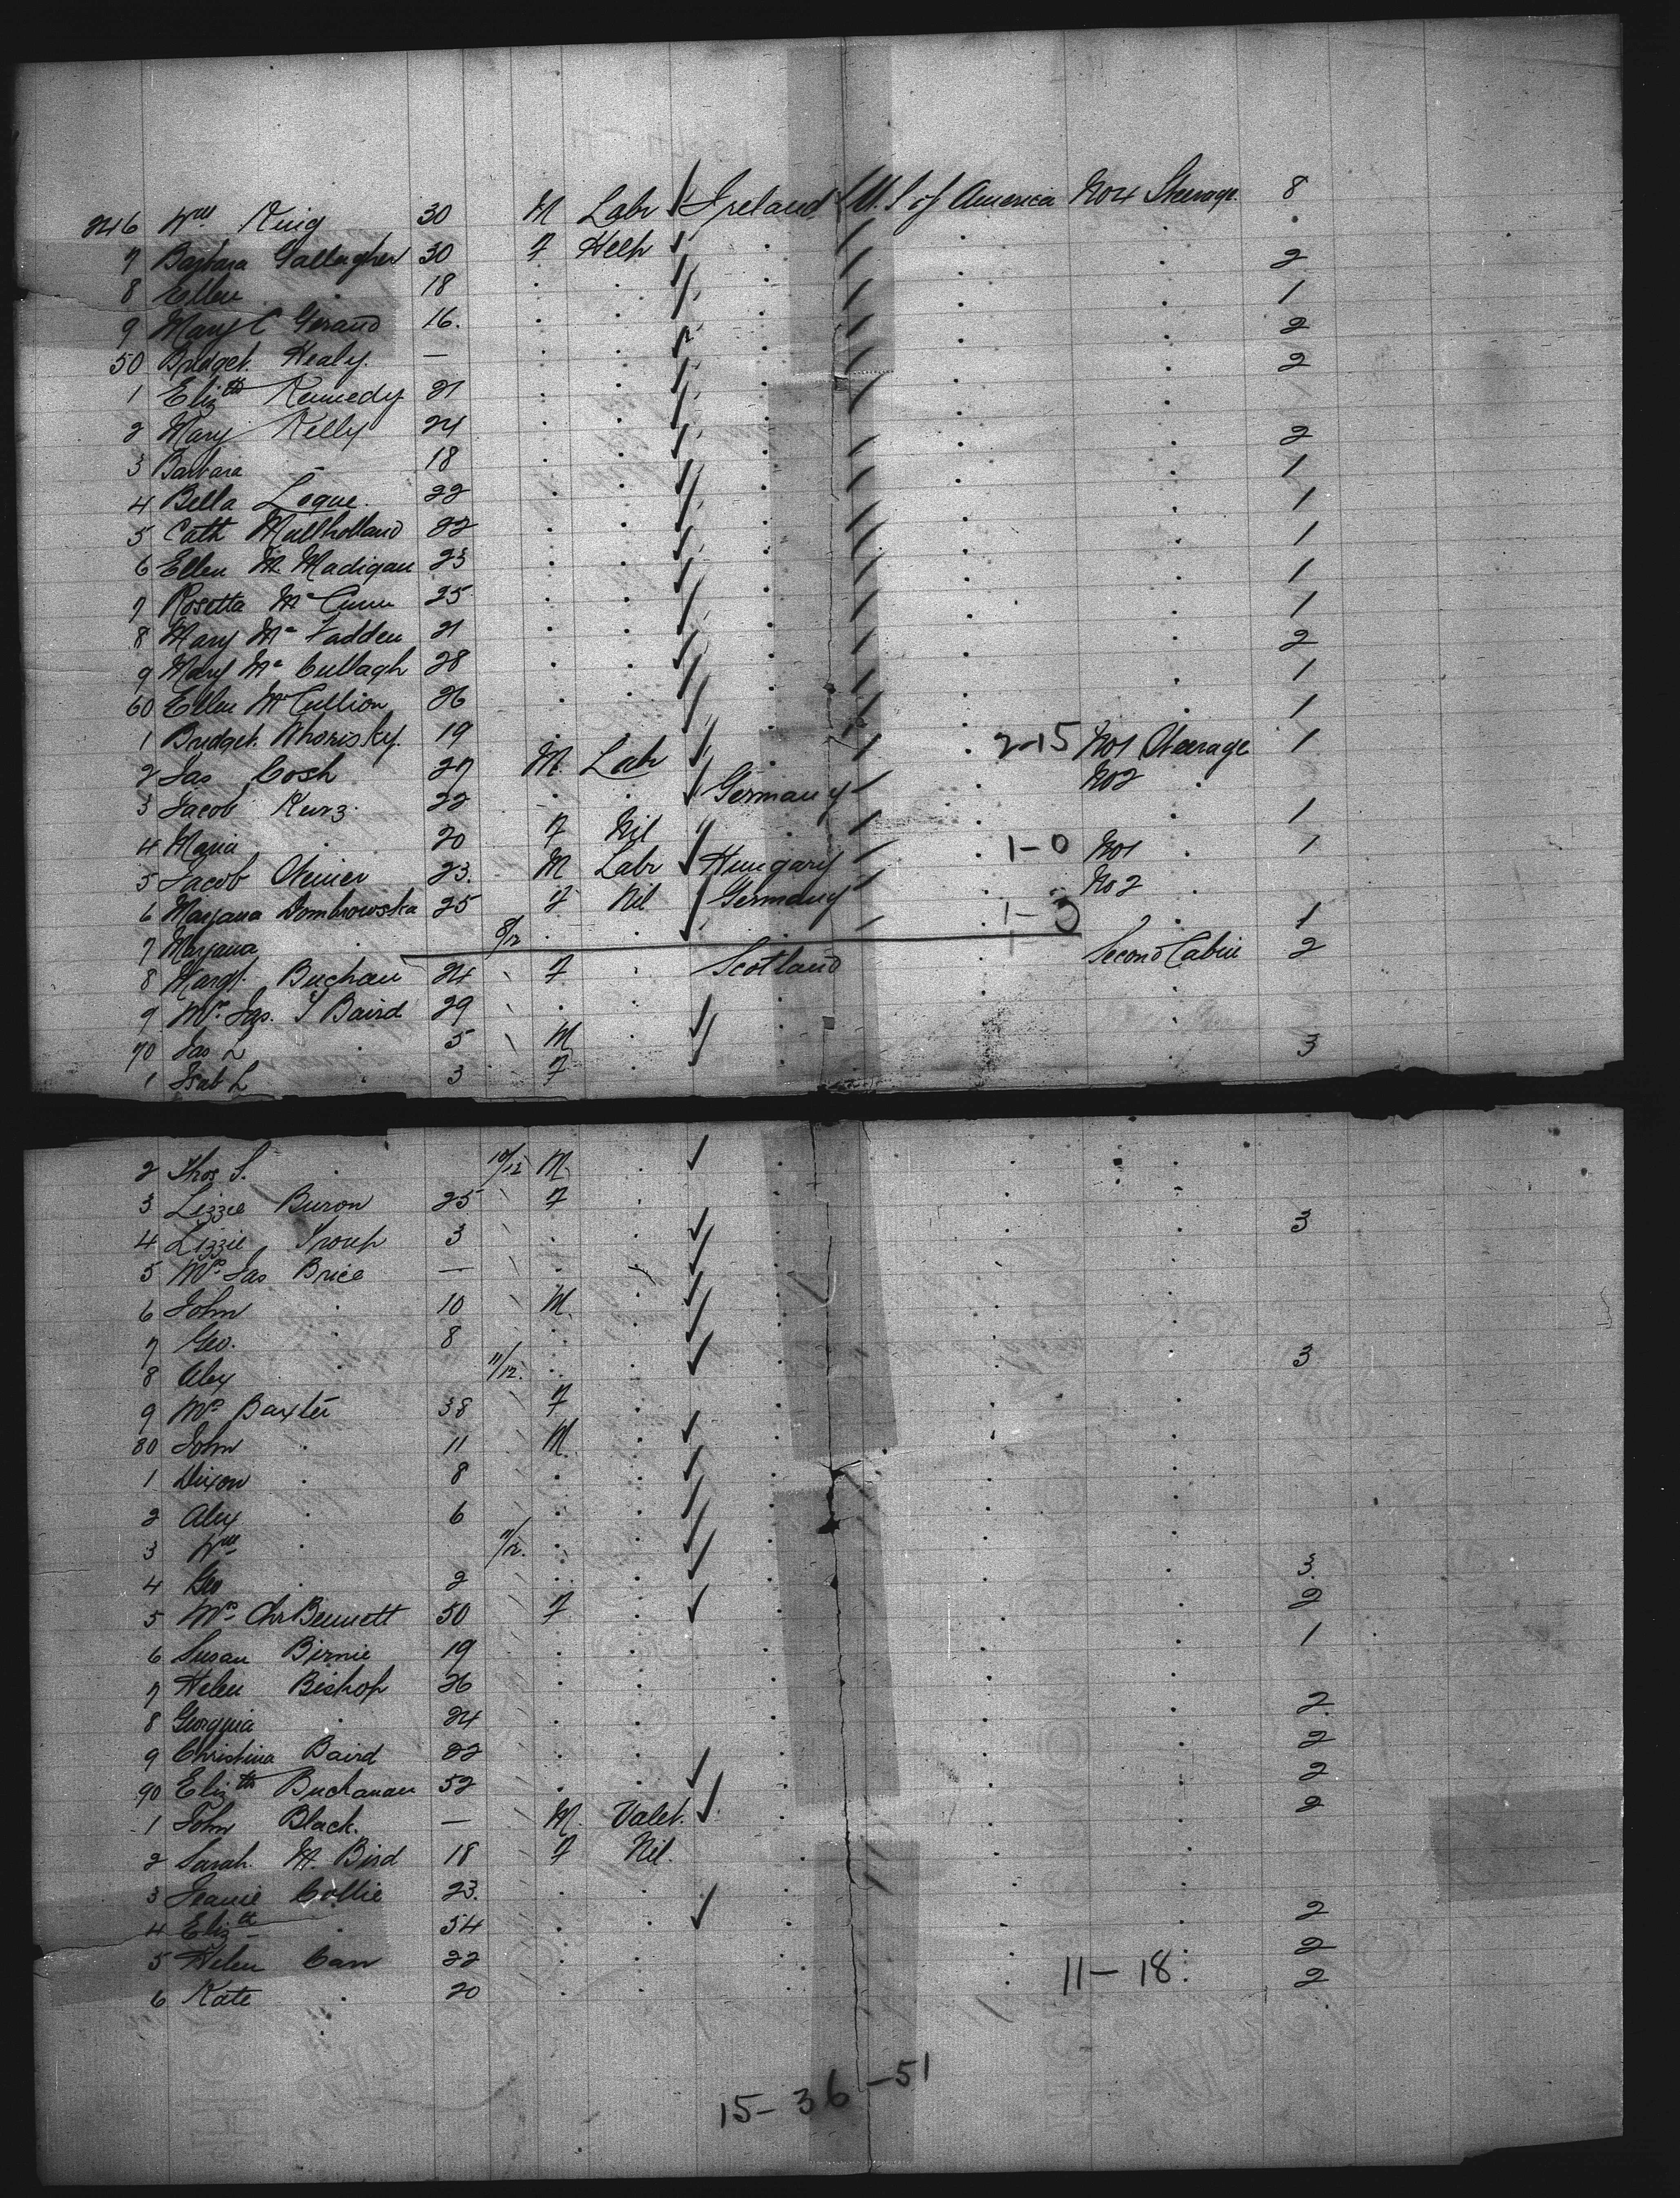 246 Wm King 30 M Labr Ireland U.S of America No4 Steerage 8
7 Barbara Gallagher 30 F Help
8 Ellen 18 2
9 Mary C 16 1
50 Bridget Healy — 2
1 Elizth Kennedy 21 2
2 Mary Kelly 24
3 Barbara 18 2
4 Bella Logue 22 1
5 Cath Mullholland 22 1
6 Ellen M. Madigan 23 1
7 Rosetta McCunn 25 1
8 Mary McFadden 21 1
9 Mary McCullagh 28 2
60 Ellen McCullion 26 1
1 Bridget Whorisky 19 1
2 Jas Cosh 27 M Labr 2-15 No1 Steerage 1
3 Jacob Kurz 22 Germany No2
4 Maria 20 F Nil 1
5 Jacob 23 M Labr Hungary 1-0 No1 1
6 Maryana Dombrowska 25 F Nil Germany No2
7 Maryana 8/12 1-3 1
8 Margt Buchan 24 F Scotland Second Cabin 2
9 Mrs Jas. S Baird 29
70 Jas L 5 M
1 Isab L 3 F 3
2 Thos S. 10/12 M
3 Lizzie Buron 25 F
4 Lizzie Troup 3 3
5 Mrs Jas Brice —
6 John 10 M
7 Geo. 8
8 Alex 11/12 3
9 Mrs Baxter 38 F
80 John 11 M
1 Dixon 8
2 Alex 6
3 Wm 11/12
4 Geo 2 3
5 Mrs Chr Bennett 50 F 2
6 Susan Birnie 19 1
7 Helen Bishop 26
8 Georgina 24 2
9 Christina Baird 22 2
90 Elizth Buchanan 52 2
1 John Black — M Valet 2
2 Sarah M. Bird 18 F Nil
3 Jeanie Collie 23
4 Elizth 54 2
5 Helen Carr 22 2
6 Kate 20 11-18 2
15-36-51